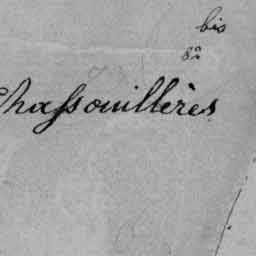 bis
8º
Chassouillères